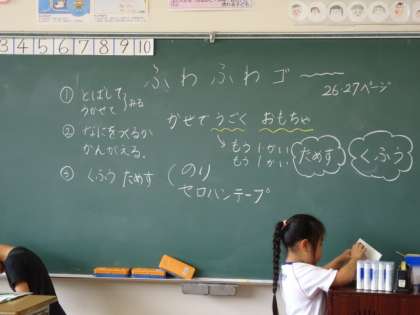 3 4 5 6 7 8 9 10
ふわふわゴー
26・27ページ
① とばして
うかせて
みる
② なにをつくるか
かんがえる。
③ くふう ためす
かぜで うごく おもちゃ
もう1かい
もう1かい
ためす
くふう
のり
セロハンテープ